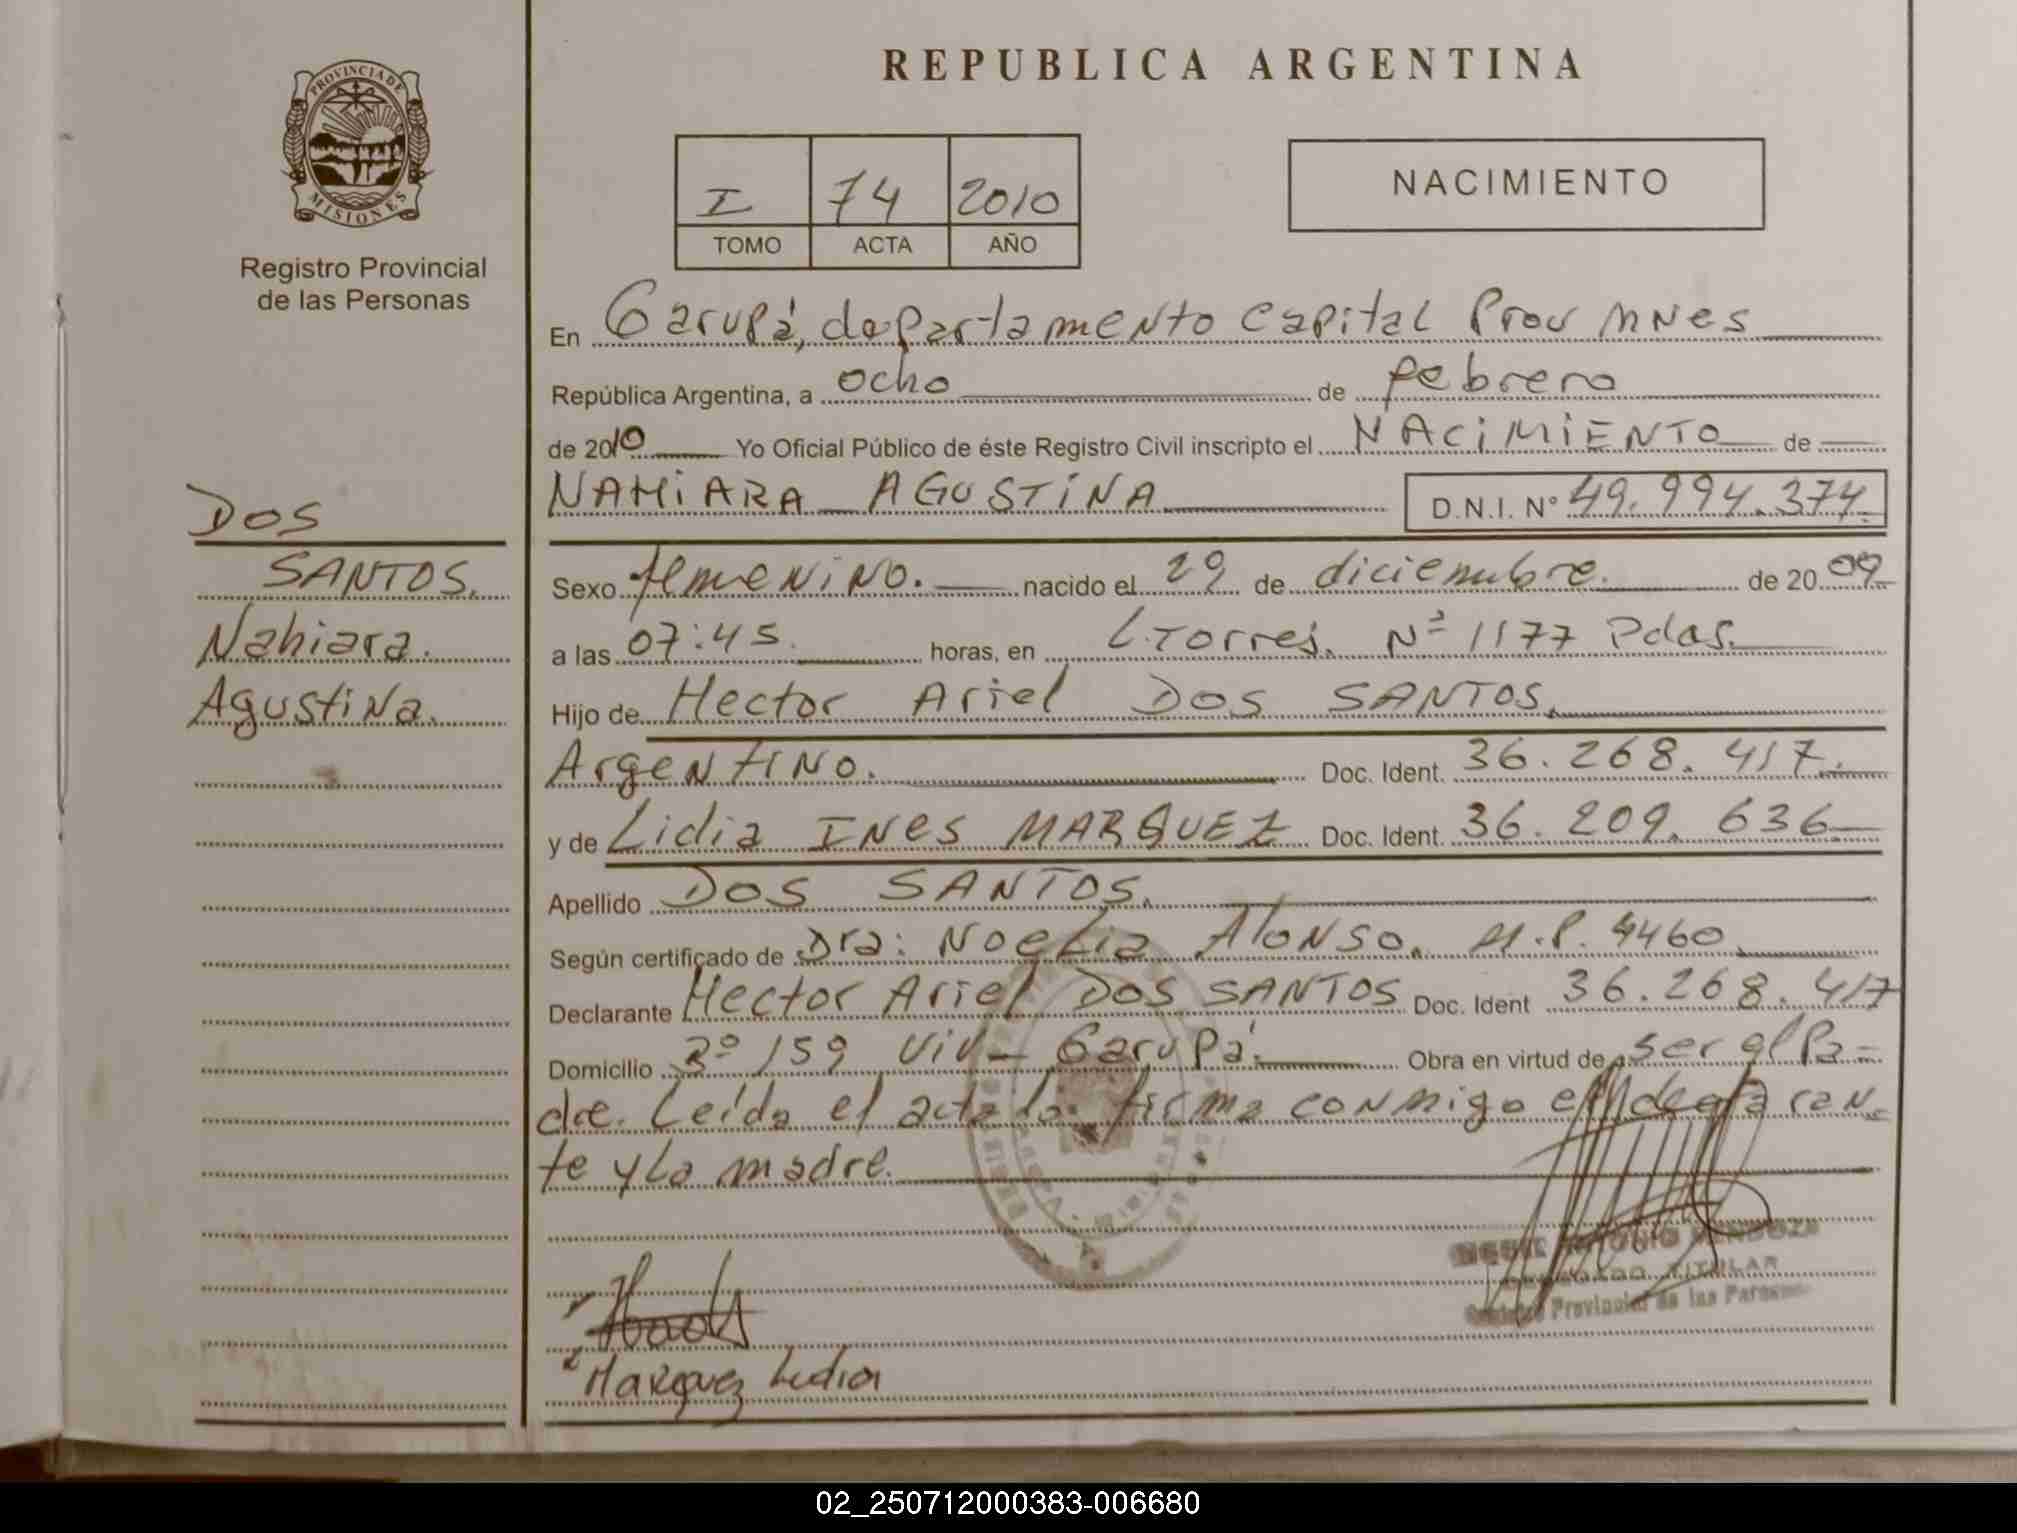 REPUBLICA ARGENTINA
PROVINCIA DE
MISIONES
Registro Provincial
de las Personas
I 74 2010
TOMO ACTA AÑO
NACIMIENTO
En Garupá, departamento Capital Prov Mnes
República Argentina, a ocho de febrero
de 2010 Yo Oficial Público de éste Registro Civil inscripto el NACIMIENTO de
NAHIARA AGUSTINA D.N.I. N° 49.994.374
DOS
SANTOS.
Nahiara.
Agustina.
Sexo femenino. nacido el 29 de diciembre. de 2009
a las 07:45. horas, en L.Torres. Nº 1177 Pdas.
Hijo de Hector Ariel DOS SANTOS.
Argentino. Doc. Ident. 36.268.417.
y de Lidia INES MARQUEZ Doc. Ident. 36.209.636
Apellido DOS SANTOS.
Según certificado de Dra: Noelia Alonso. M.P. 4460.
Declarante Hector Ariel DOS SANTOS Doc. Ident 36.268.417
Domicilio 159 viv- Garupá. Obra en virtud de ser el Pa-
dre. Leída el acta la firma conmigo el declaran-
te y la madre.
ANTONIO MENDOZA
TITULAR
Provincial de las Personas
Marquez Lidia
02_250712000383-006680